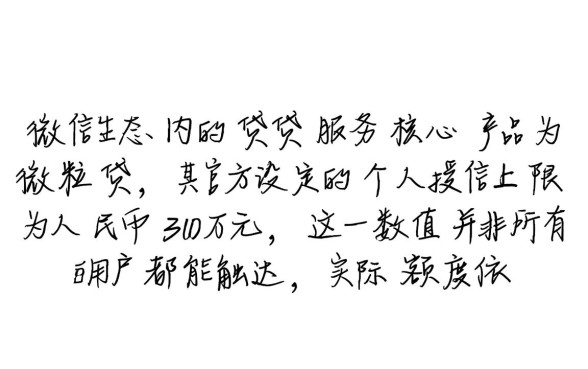 微信生态内的贷贷服务核心产品为
微粒贷，其官方设定的个人授信上限
为人民币300万元，这一数值并非所有
的用户都能触达，实际额度依